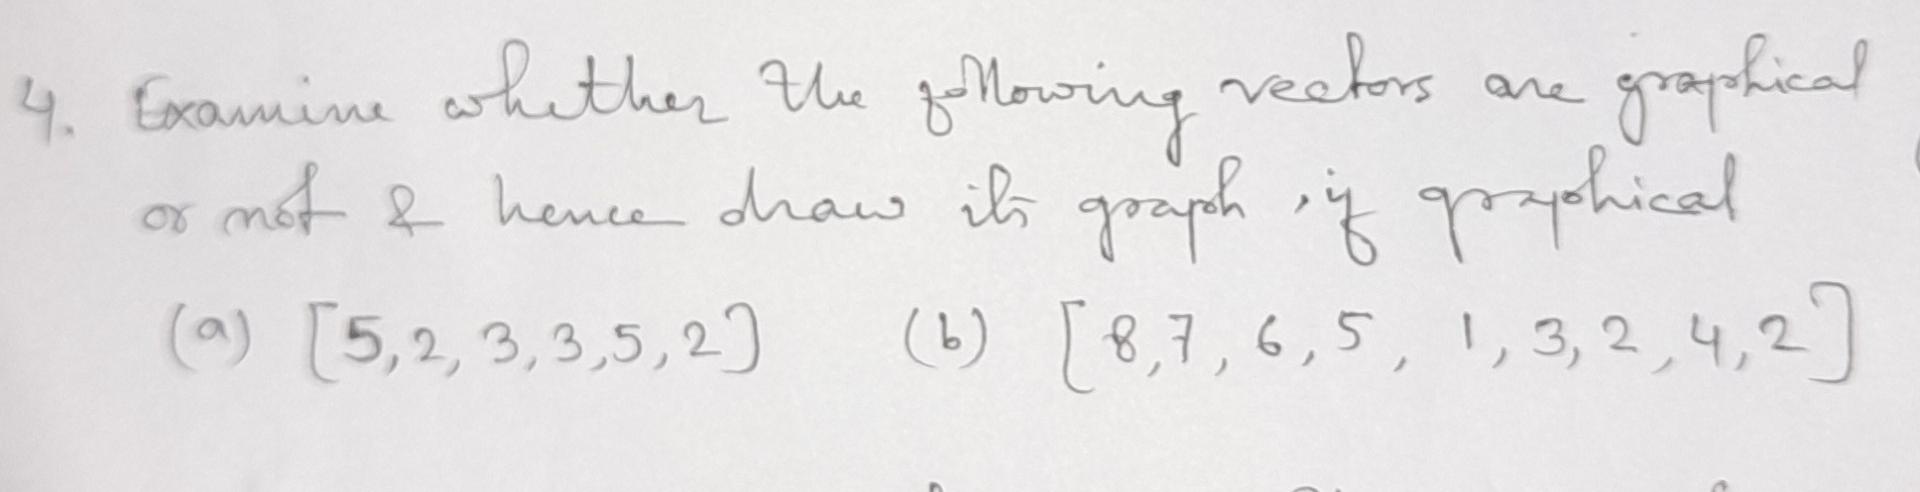 4. Examine whether the following vectors are graphical
or not & hence draw its graph, if graphical
(a) [5,2,3,3,5,2] (b) [8,7,6,5,1,3,2,4,2]